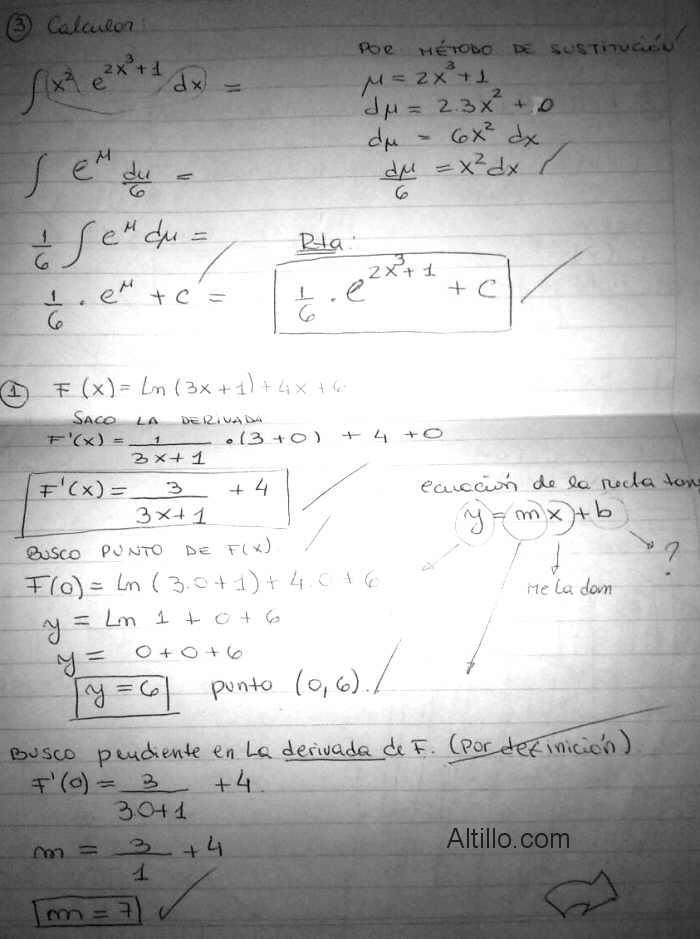 ③ Calcular:
∫ x² e^(2x³+1) dx =
POR MÉTODO DE SUSTITUCIÓN
μ = 2x³+1
dμ = 2.3x² + 0
dμ = 6x² dx
dμ/6 = x²dx
∫ e^μ du/6 =
1/6 ∫ e^μ dμ =
1/6 . e^μ + c =
Rta:
1/6 . e^(2x³+1) + c
① F(x) = Ln(3x+1)+4x+6
SACO LA DERIVADA
F'(x) = 1/(3x+1) . (3+0) + 4 + 0
F'(x) = 3/(3x+1) + 4
ecuación de la recta tang
y = mx + b
?
Me la dan
BUSCO PUNTO DE F(X)
F(0) = Ln(3.0+1)+4.0+6
y = Ln 1 + 0 + 6
y = 0+0+6
y = 6 punto (0,6).
BUSCO pendiente en La derivada de F. (Por definición)
F'(0) = 3/(3.0+1) + 4.
m = 3/1 + 4
m = 7
Altillo.com